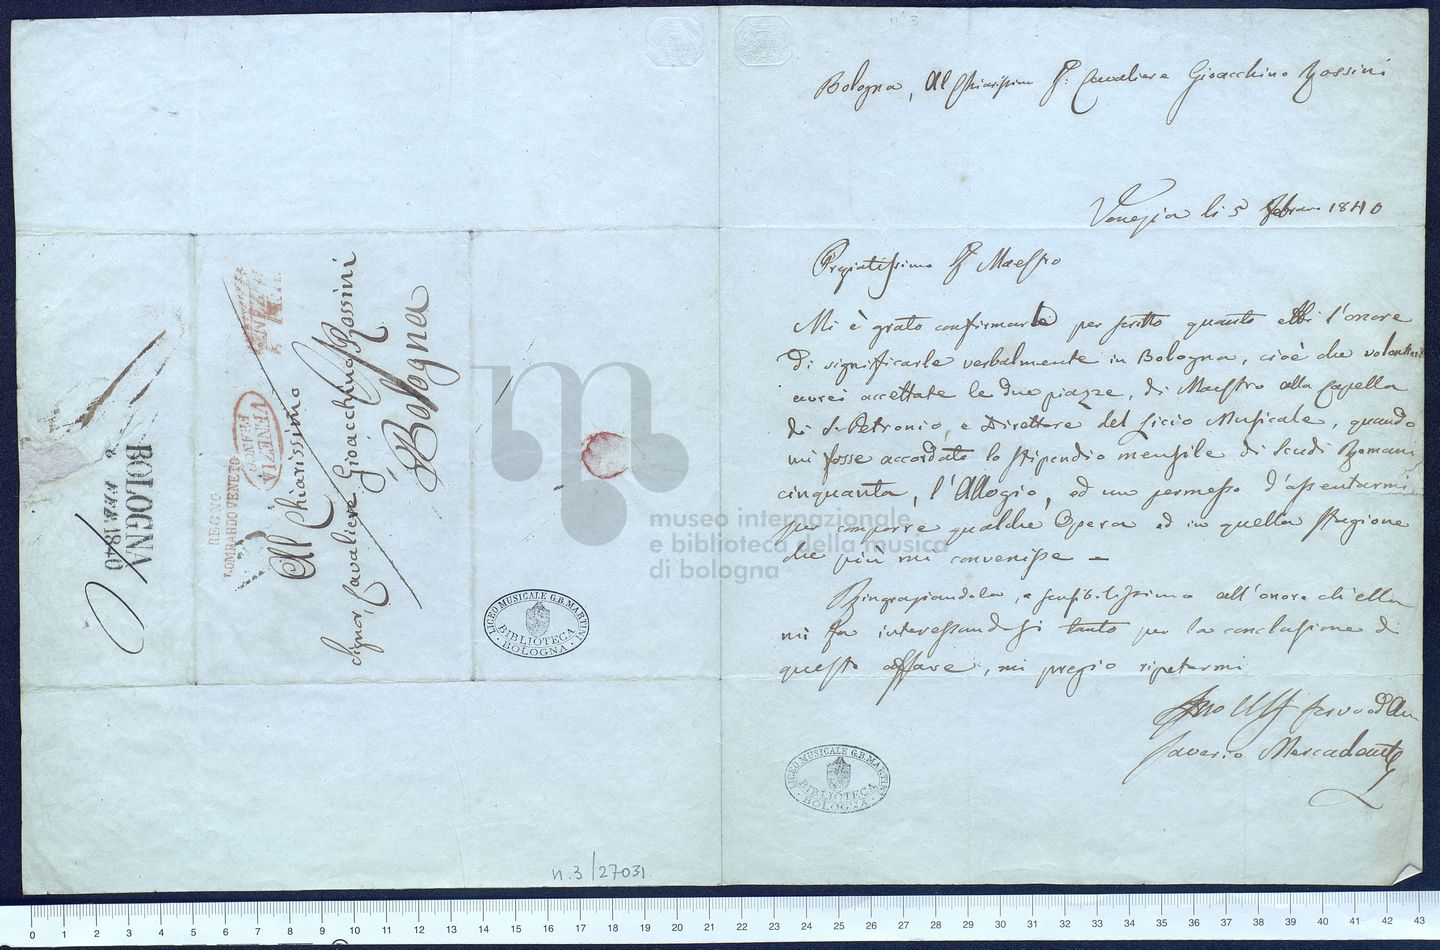 N. 3
Bologna, Al Chiarissimo Sr: Cavaliere Gioacchino Rossini
Venezia li 5 febraro 1840
Pregiatissimo Sr Maestro
Mi è grato confirmarle per scritto quanto ebbi l'onore
di significarle verbalmente in Bologna, cioè che volontieri
avrei accettate le due piazze, di Maestro alla Capella
di S. Petronio, e Direttore del Licio Musicale, quando
mi fosse accordato lo stipendio mensile di scudi Romani
cinquanta, l'Allogio, ed un permesso d'assentarmi
per comporre qualche Opera ed in quella stagione
che più mi convenisse –
Ringraziandola, e sensibilissimo all'onore ch'ella
mi fa interessandosi tanto per la conclusione di
questo affare, mi pregio ripetermi
servo ed Am
Saverio Mercadante
Al Chiarissimo
Signor Cavaliere Gioacchino Rossini
Bologna
REGNO
LOMBARDO VENETO
VENEZIA
FEBB.O
BOLOGNA
8 FEB. 1840
LICEO MUSICALE G.B. MARTINI
BIBLIOTECA
BOLOGNA
LICEO MUSICALE G.B. MARTINI
BIBLIOTECA
BOLOGNA
n. 3/27031.
museo internazionale
e biblioteca della musica
di bologna
0 1 2 3 4 5 6 7 8 9 10 11 12 13 14 15 16 17 18 19 20 21 22 23 24 25 26 27 28 29 30 31 32 33 34 35 36 37 38 39 40 41 42 43